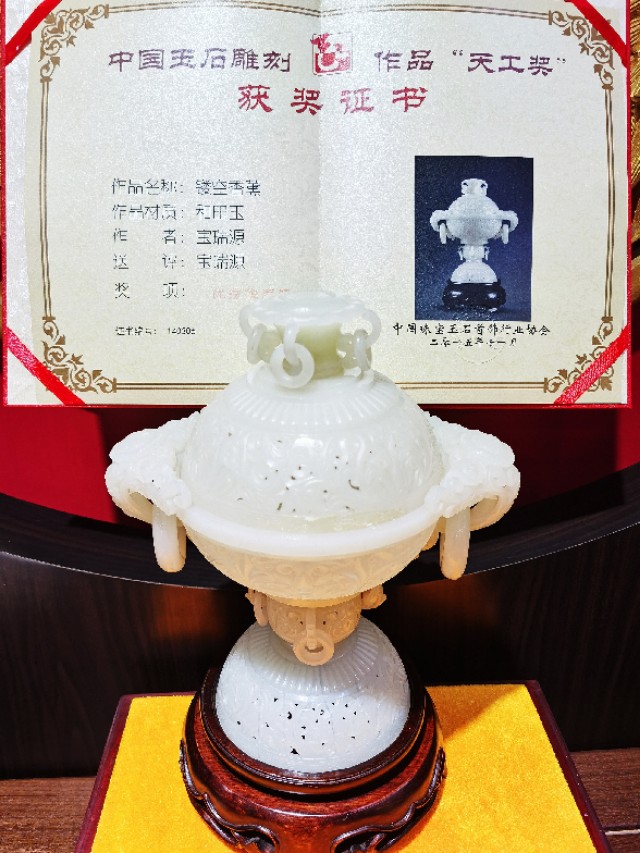 中国玉石雕刻 作品 “天工奖”
获奖证书
作品名称：镂空香薰
作品材质：和田玉
作 者：宝瑞源
送 评：宝瑞源
奖 项：
证书编号：
中国珠宝玉石首饰行业协会
二〇一五年十一月